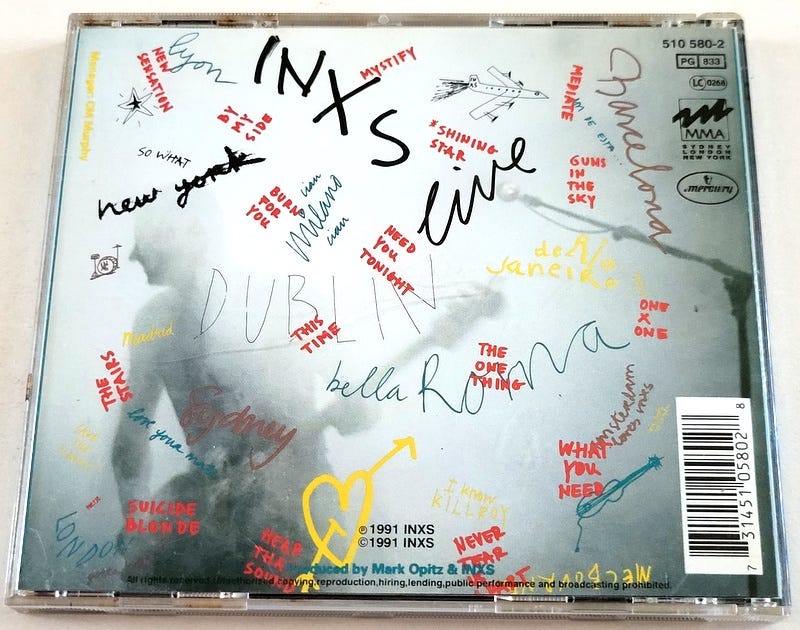 Manager: CM Murphy
NEW
SENSATION
lyon
INXS
live
MYSTIFY
510 580-2
PG 833
LC 0268
MMA
SYDNEY
LONDON
NEW YORK
mercury
MEDIATE
Charcelona
BY
MY
SIDE
*SHINING
STAR
SO WHAT
new york
GUNS
IN
THE
SKY
BURN
FOR
YOU
ciao
Milano
ciao
NEED
YOU
TONIGHT
de Rio
Janeiro
DUBLIN
ONE
X
ONE
THIS
TIME
Madrid
THE
STAIRS
THE
ONE
THING
bella Roma
Sydney
love your mate
amsterdam
loves mates
WHAT
YOU
NEED
I know
KILLROY
SUICIDE
BLONDE
LONDON
HEAR
THAT
SOUND
℗ 1991 INXS
© 1991 INXS
NEVER
TEAR
APART
MELBOURNE
Produced by Mark Opitz & INXS
All rights reserved. Unauthorised copying, reproduction, hiring, lending, public performance and broadcasting prohibited.
7 31451 05802 8